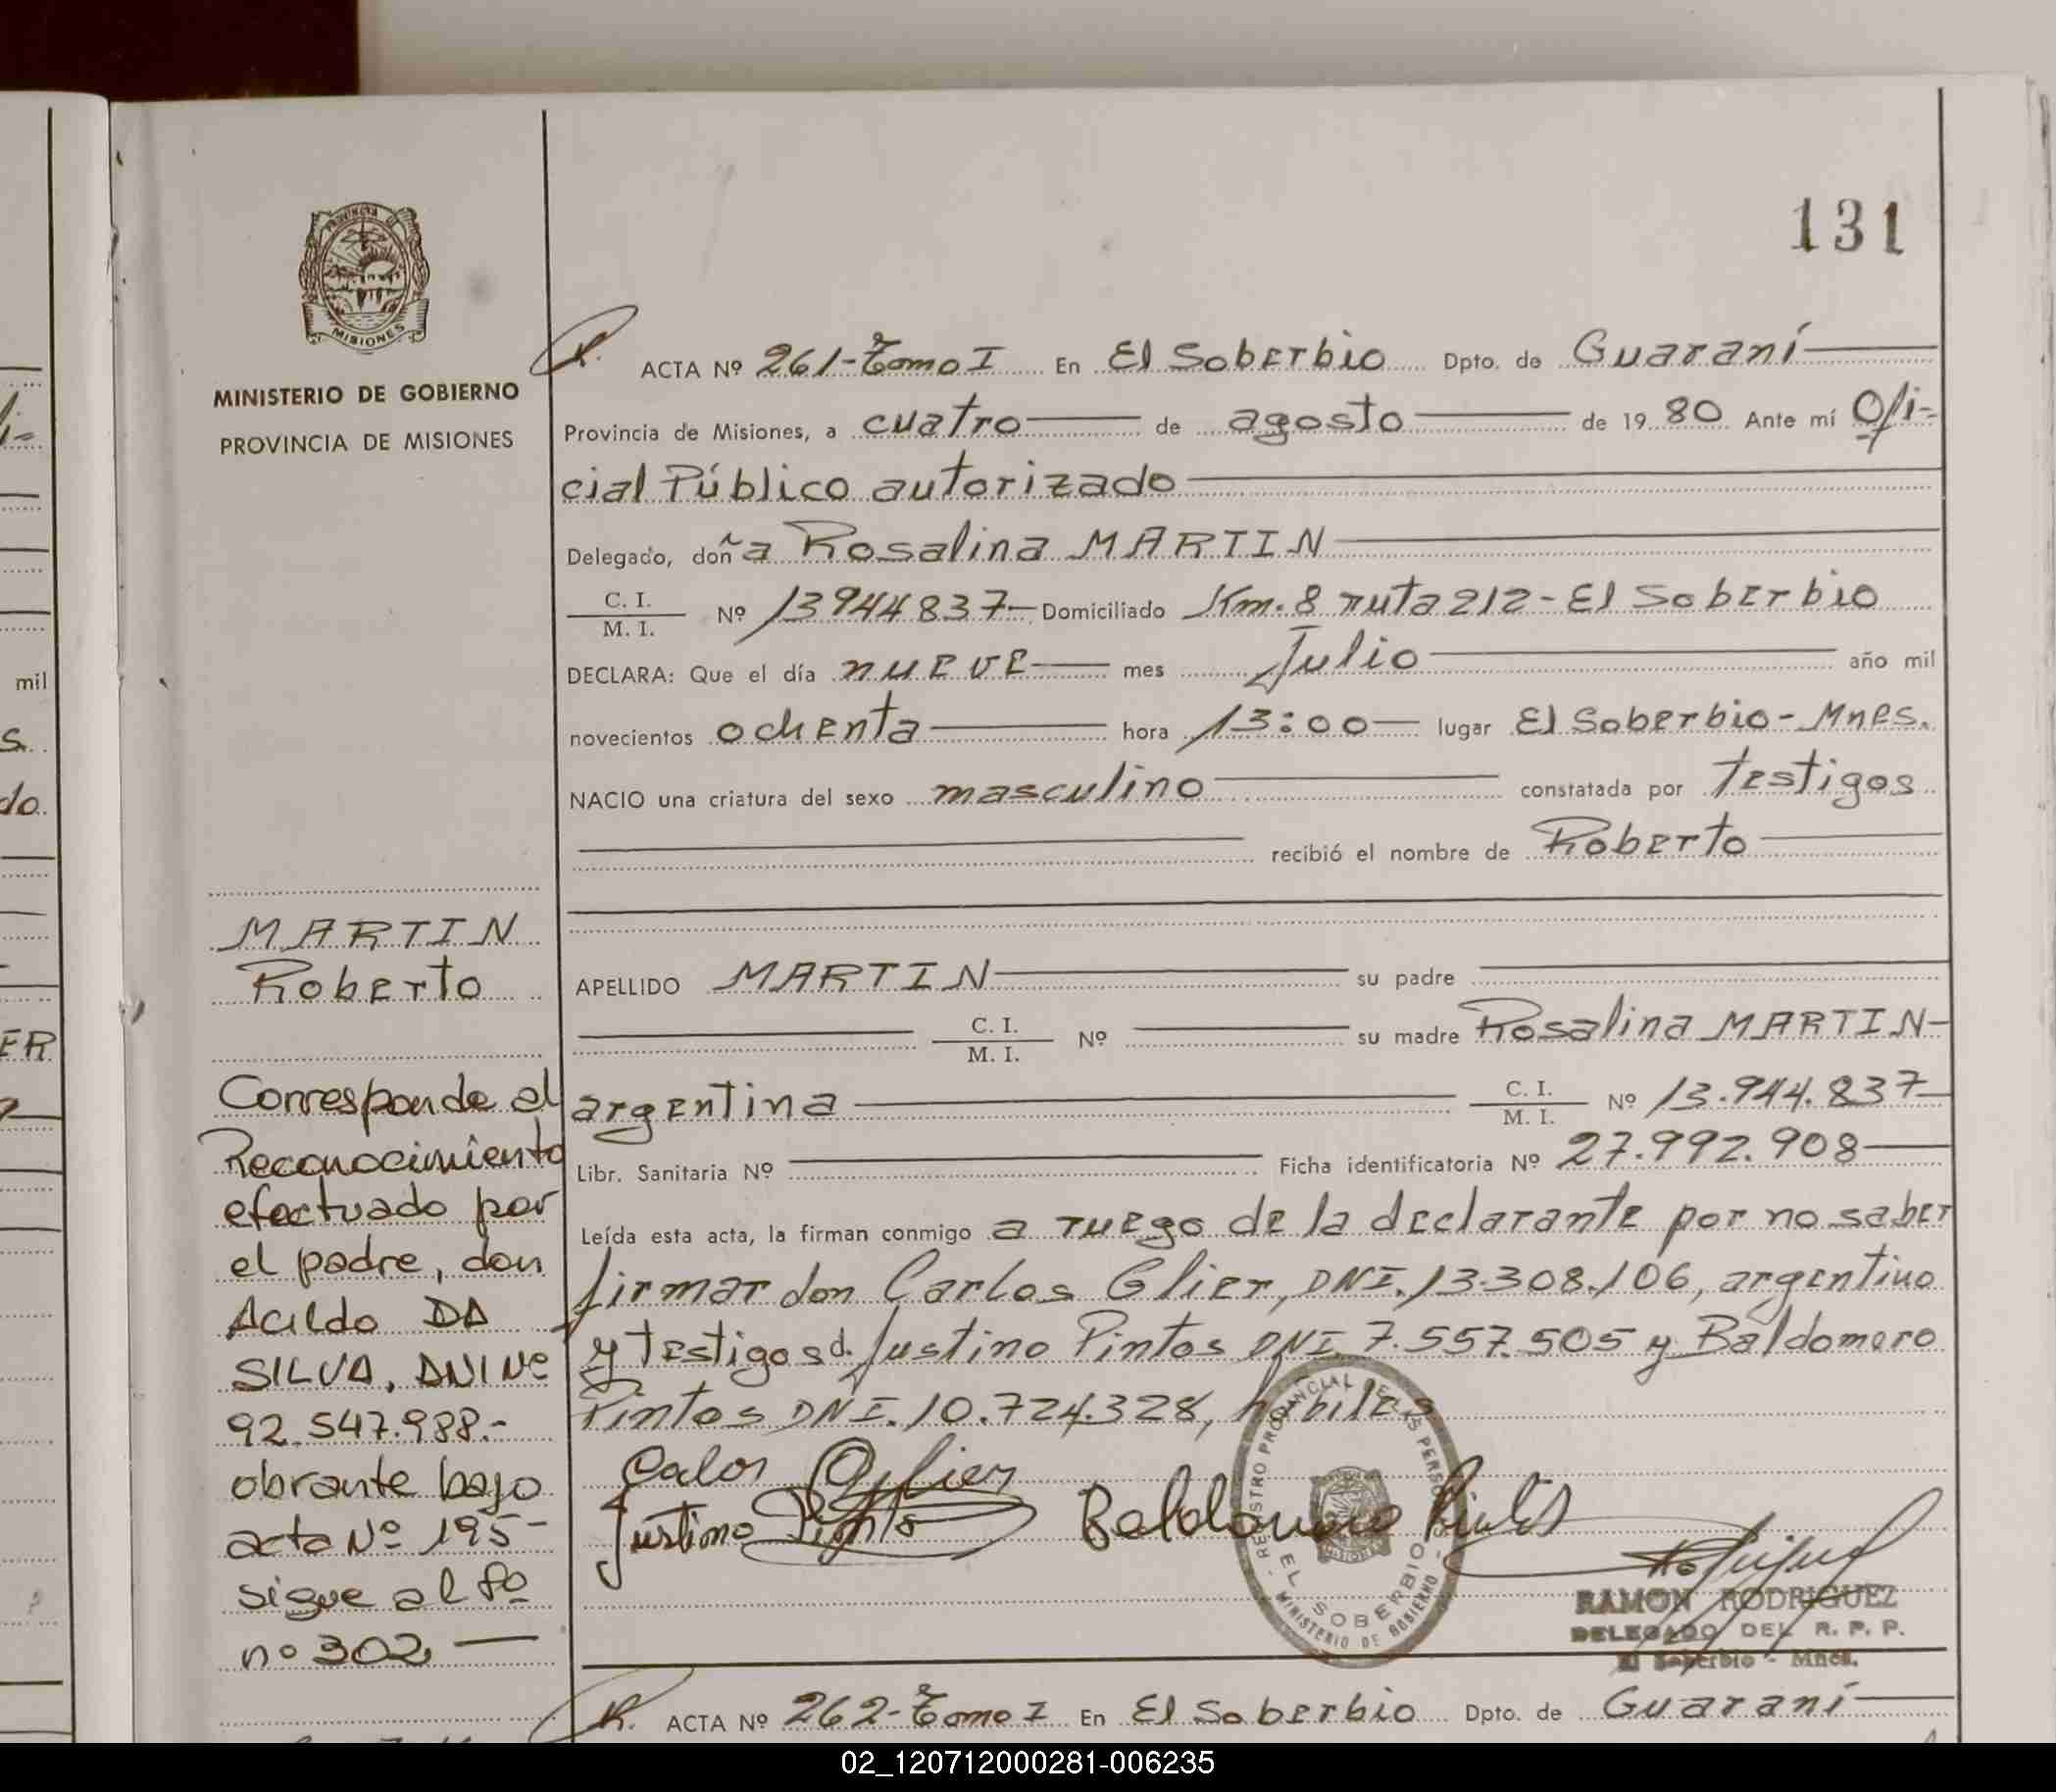 131
PROVINCIA DE
MISIONES
MINISTERIO DE GOBIERNO
PROVINCIA DE MISIONES
R. ACTA Nº 261-Tomo I En El Soberbio Dpto. de Guaraní
Provincia de Misiones, a cuatro de agosto de 19 80 Ante mí Ofi-
cial Público autorizado
Delegado, doña Rosalina MARTIN
C. I.
M. I. Nº 13944837- Domiciliado Km. 8 ruta 212 - El Soberbio
DECLARA: Que el día nueve mes Julio año mil
novecientos ochenta hora 13:00 lugar El Soberbio - Mnes.
NACIO una criatura del sexo masculino constatada por testigos
recibió el nombre de Roberto
APELLIDO MARTIN su padre
C. I.
M. I. Nº su madre Rosalina MARTIN-
argentina C. I.
M. I. Nº 13.944.837
Libr. Sanitaria Nº Ficha identificatoria Nº 27.992.908
Leída esta acta, la firman conmigo a ruego de la declarante por no saber
firmar don Carlos Glier, DNI. 13.308.106, argentino
y testigos d. Justino Pintos DNI 7.557.505 y Baldomero
Pintos DNI. 10.724.328, hábiles
Justino Pinto
Baldomero
REGISTRO PROVINCIAL DE LAS PERSONAS
EL SOBERBIO
MINISTERIO DE GOBIERNO
RAMON RODRIGUEZ
DELEGADO DEL R. P. P.
El Soberbio - Mnes.
MARTIN
Roberto
Corresponde al
Reconocimiento
efectuado por
el padre, don
Acildo DA
SILVA, DNI Nº
92.547.988.-
obrante bajo
acta Nº 195-
sigue al fº
nº 302
R. ACTA Nº 262-Tomo I En El Soberbio Dpto. de Guaraní
mil
s.
do.
ER
02_120712000281-006235